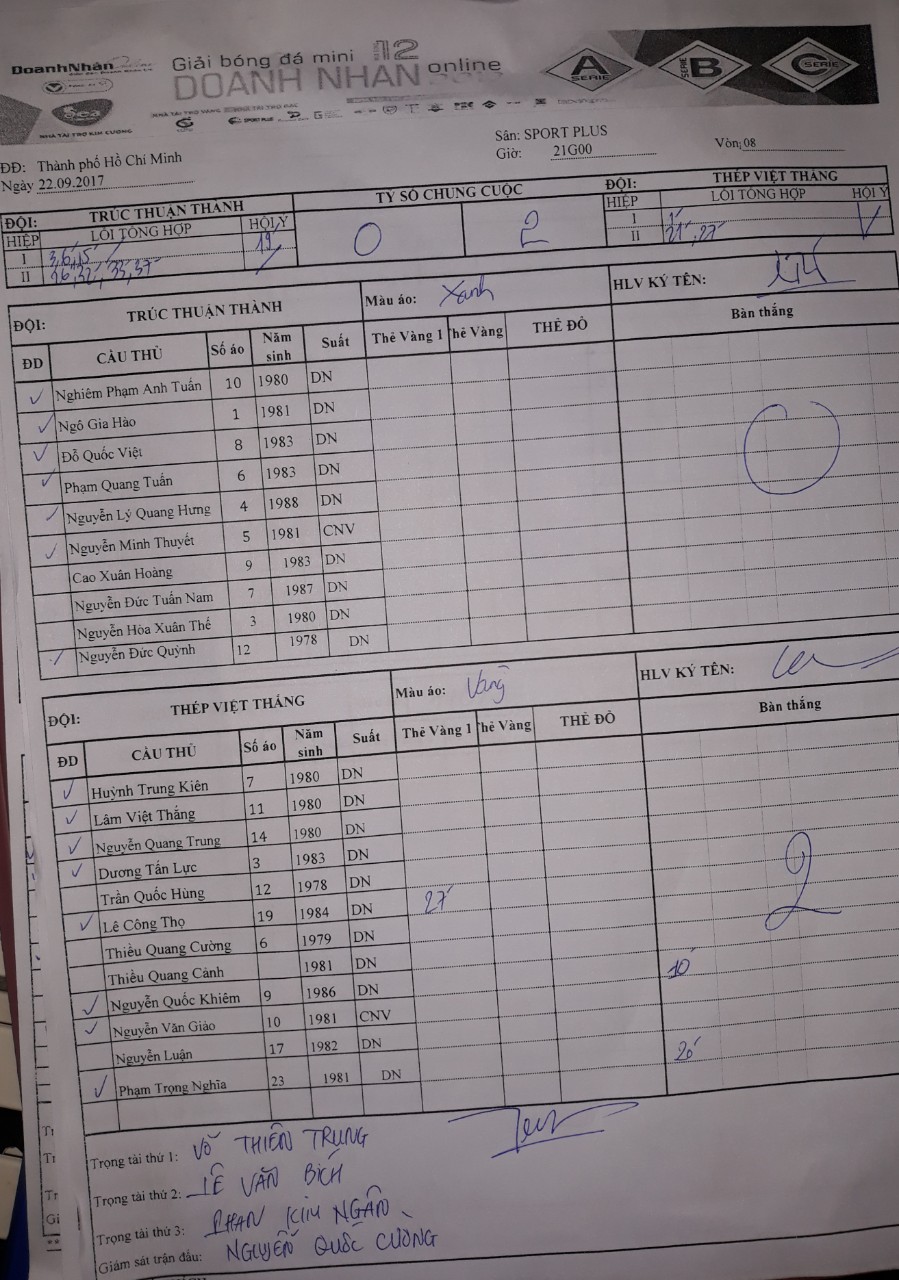 DoanhNhân
Giải bóng đá mini 12
DOANH NHÂN online
A SERIE
SERIE B
C SERIE
NHÀ TÀI TRỢ KIM CƯƠNG
NHÀ TÀI TRỢ VÀNG
SPORT PLUS
ĐĐ: Thành phố Hồ Chí Minh
Sân: SPORT PLUS
Ngày 22.09.2017
Giờ: 21G00
Vòn: 08
ĐỘI: TRÚC THUẬN THÀNH
TỶ SỐ CHUNG CUỘC
ĐỘI: THÉP VIỆT THẮNG
HIỆP LỖI TỔNG HỢP HỘI Ý
0 2
HIỆP LỖI TỔNG HỢP HỘI Ý
I 3,6,15 19
I 1'
II 26,32, 33,37
II 21', 27'
ĐỘI: TRÚC THUẬN THÀNH Màu áo: Xanh HLV KÝ TÊN:
ĐD CẦU THỦ Số áo Năm sinh Suất Thẻ Vàng 1 hẻ Vàng THẺ ĐỎ Bàn thắng
✓ Nghiêm Phạm Anh Tuấn 10 1980 DN
✓ Ngô Gia Hào 1 1981 DN
✓ Đỗ Quốc Việt 8 1983 DN
✓ Phạm Quang Tuấn 6 1983 DN
✓ Nguyễn Lý Quang Hưng 4 1988 DN
✓ Nguyễn Minh Thuyết 5 1981 CNV
Cao Xuân Hoàng 9 1983 DN
Nguyễn Đức Tuấn Nam 7 1987 DN
Nguyễn Hòa Xuân Thế 3 1980 DN
✓ Nguyễn Đức Quỳnh 12 1978 DN
0
ĐỘI: THÉP VIỆT THẮNG Màu áo: Vàng HLV KÝ TÊN:
ĐD CẦU THỦ Số áo Năm sinh Suất Thẻ Vàng 1 hẻ Vàng THẺ ĐỎ Bàn thắng
✓ Huỳnh Trung Kiên 7 1980 DN
✓ Lâm Việt Thắng 11 1980 DN
✓ Nguyễn Quang Trung 14 1980 DN
✓ Dương Tấn Lực 3 1983 DN
Trần Quốc Hùng 12 1978 DN
✓ Lê Công Thọ 19 1984 DN 27'
Thiều Quang Cường 6 1979 DN
Thiều Quang Cảnh 1981 DN
✓ Nguyễn Quốc Khiêm 9 1986 DN 10'
✓ Nguyễn Văn Giáo 10 1981 CNV
Nguyễn Luận 17 1982 DN
✓ Phạm Trọng Nghĩa 23 1981 DN 20'
2
Trọng tài thứ 1: VÕ THIÊN TRUNG
Trọng tài thứ 2: LÊ VĂN BÍCH
Trọng tài thứ 3: PHAN KIM NGÂN
Giám sát trận đấu: NGUYỄN QUỐC CƯỜNG